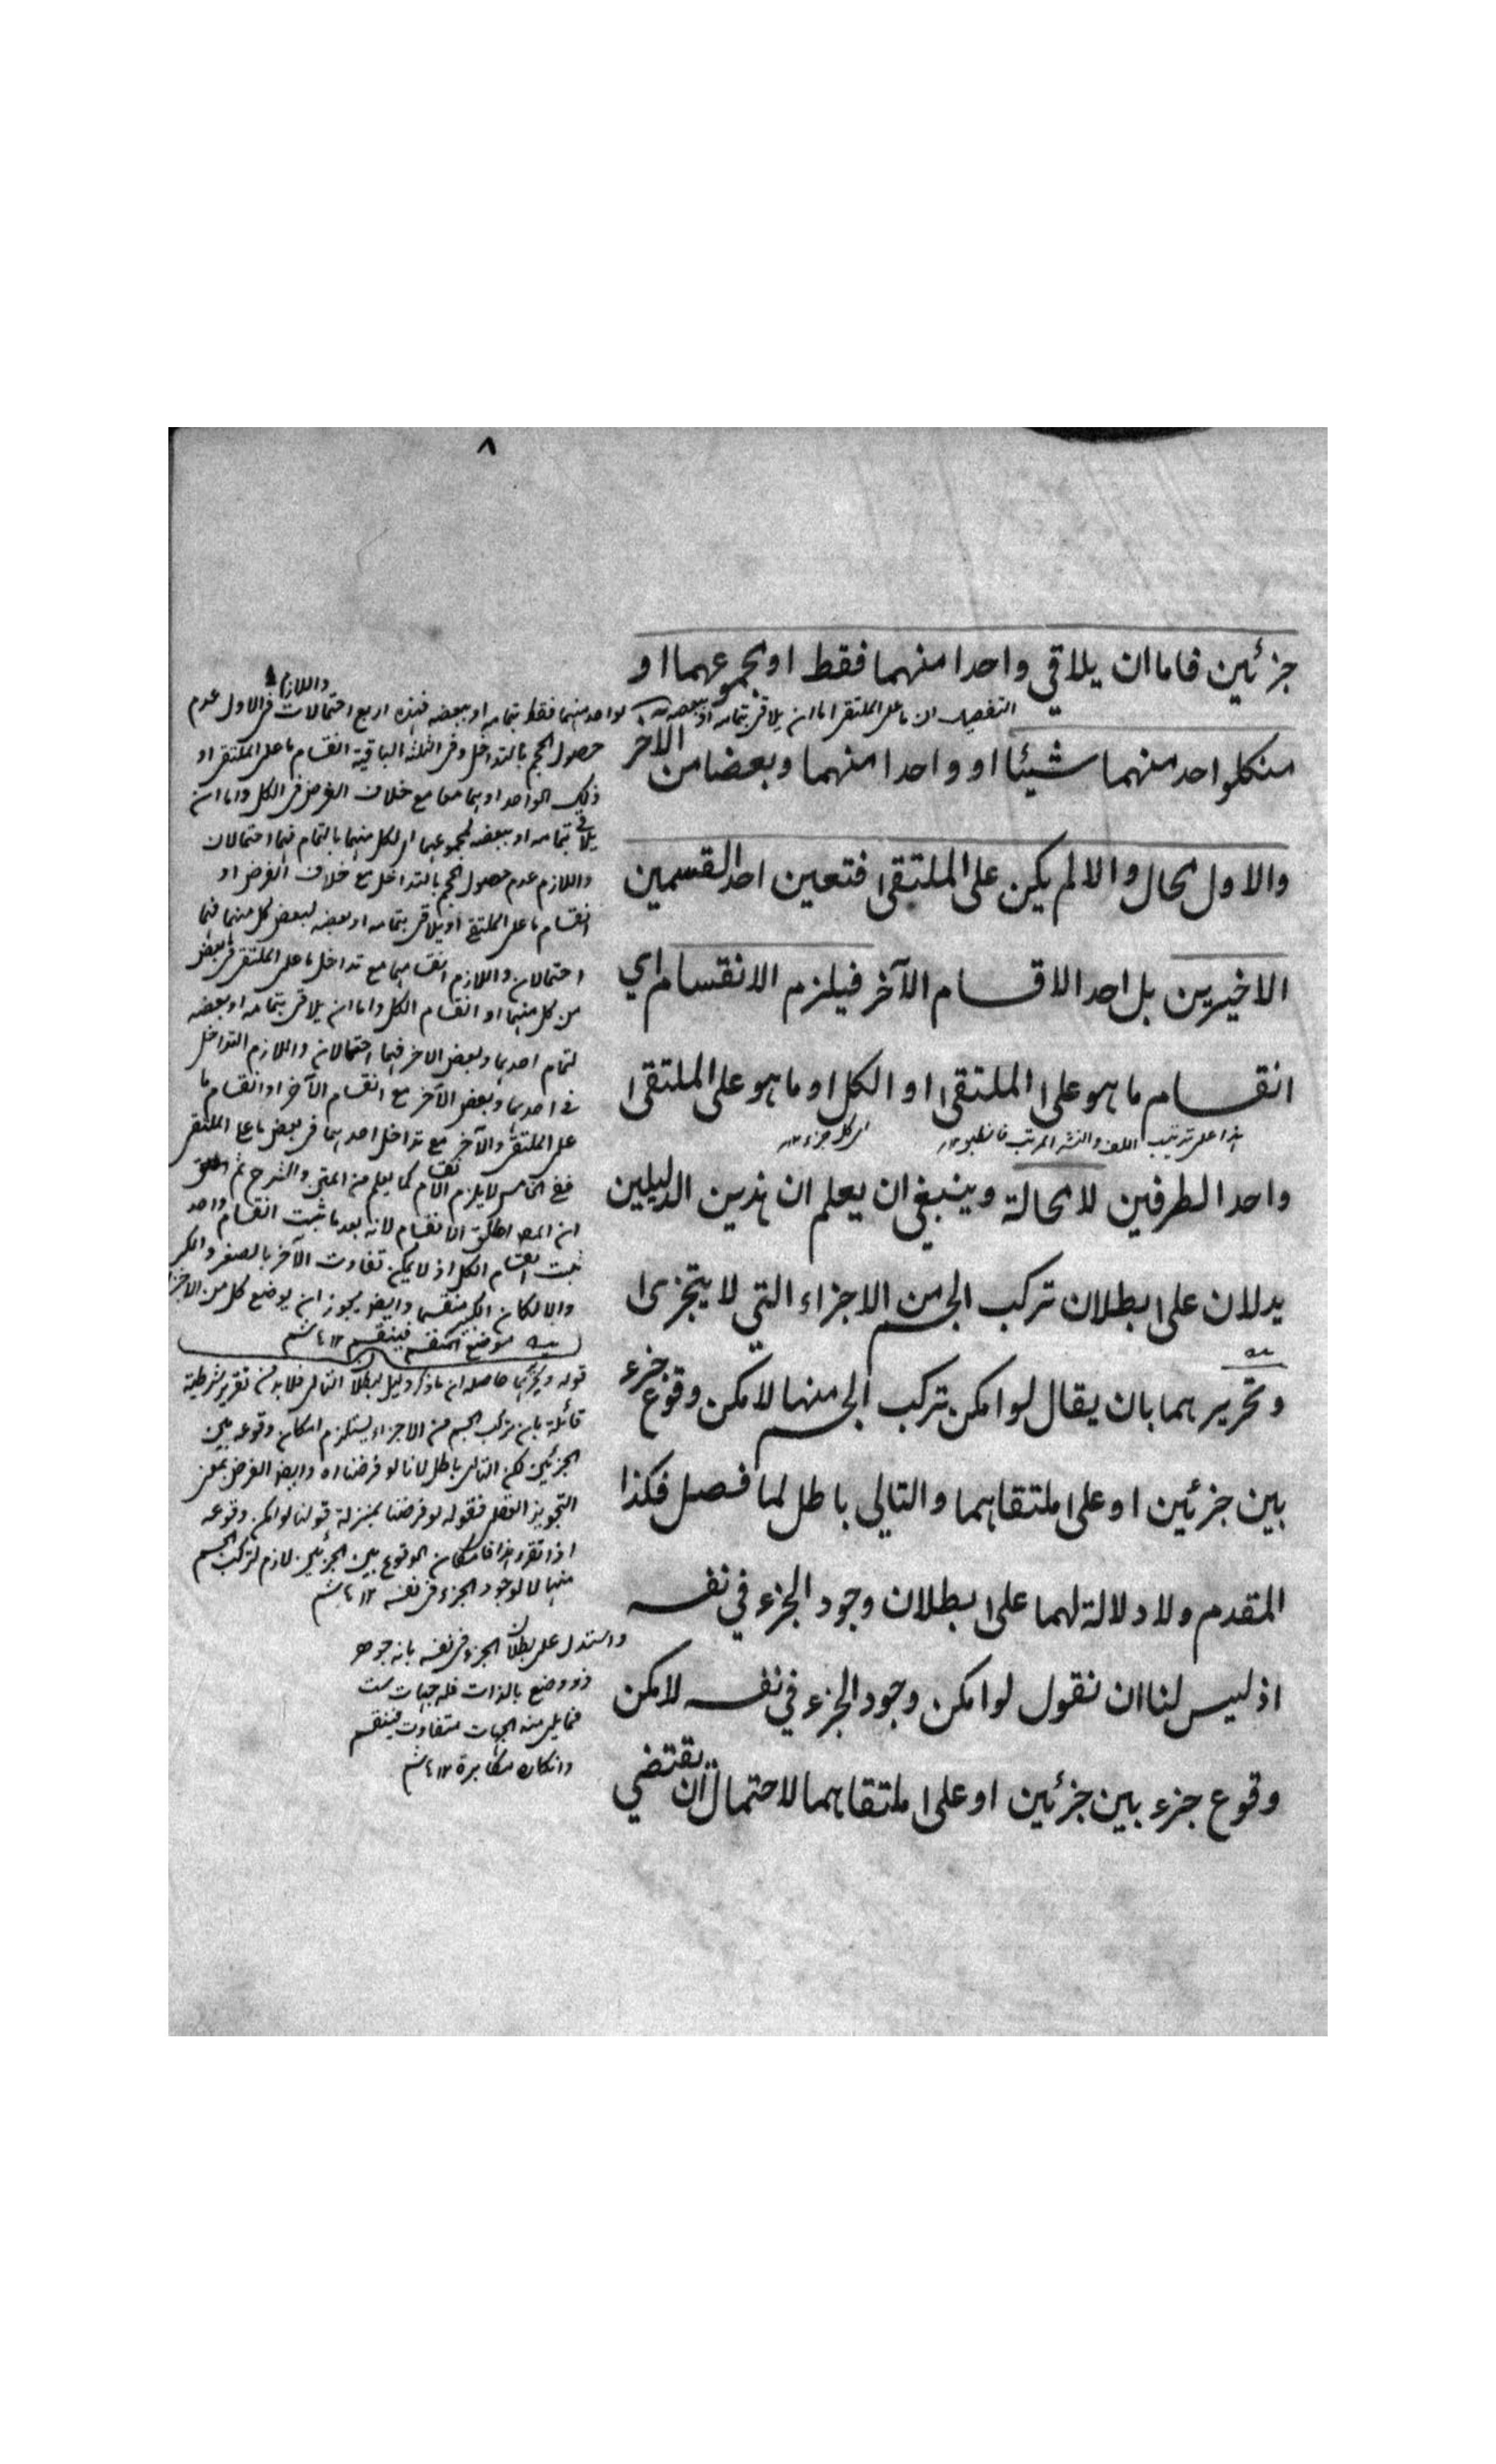 ٨
جزئين فاما ان يلاقي واحدا منهما فقط او بمجموعهما او
منكلواحد منهما شيئا او واحدا منهما وبعضا من الآخر
والاول محال والا لم يكن على الملتقى فتعين احد القسمين
الاخيرين بل احد الاقسام الآخر فيلزم الانقسام اي
انقسام ما هو على الملتقى او الكل او ما هو على الملتقى
هذا على ترتيب اللف والنشر المرتب فانظر ١٢
اي كل جزء ١٢
واحد الطرفين لا محالة وينبغي ان يعلم ان هذين الدليلين
يدلان على بطلان تركب الجسم من الاجزاء التي لا يتجزى
وتحريرهما بان يقال لو امكن تركب الجسم منها لامكن وقوع جزء
بين جزئين او على ملتقاهما والتالي باطل لما فصل فكذا
المقدم ولا دلالة لهما على بطلان وجود الجزء في نفسه
اذ ليس لنا ان نقول لو امكن وجود الجزء في نفسه لامكن
وقوع جزء بين جزئين او على ملتقاهما لاحتمال ان يقتضي
التفصيل ان ما على الملتقى اما ان يلاقي بتمامه او ببعضه
لواحد منهما فقط بتمامه او ببعضه فهذه اربع احتمالات واللازم في الاول عدم
حصول الحجم بالتداخل وفي الثلثة الباقية انقسام ما على الملتقى او
ذلك الواحد او هما معا مع خلاف الفرض في الكل واما ان
يلاقي بتمامه او ببعضه لمجموعهما اي لكل منهما بالتمام فهما احتمالان
واللازم عدم حصول الحجم بالتداخل مع خلاف الفرض او
انقسام ما على الملتقى او يلاقي بتمامه او بعضه لبعض كل منهما فهما
احتمالان واللازم انقسامهما مع تداخل ما على الملتقى في بعض
من كل منهما او انقسام الكل واما ان يلاقي بتمامه او ببعضه
لتمام احدهما وبعض الآخر فهما احتمالان واللازم التداخل
في احدهما وبعض الآخر مع انقسام الآخر او انقسام ما
على الملتقى والآخر مع تداخل احدهما في بعض ما على الملتقى
ففي الخامس لا يلزم الانقسام كما يعلم من المتن والشرح ثم
ان المص اطلق الانقسام لانه بعد ما ثبت انقسام واحد
ثبت انقسام الكل اذ لا يمكن تفاوت الآخر بالصغر والكبر
والا لكان الكبير منقسما وايضا يجوز ان يوضع كل من الاجزاء
موضع المنقسم فينقسم ١٢
قوله وتحريرهما حاصله ان ما ذكر دليل لبطلان التالي فلا بد من تقرير شرطية
قائلة بان تركب الجسم من الاجزاء يستلزم امكان وقوعه بين
الجزئين لكن التالي باطل لانا لو فرضنا اه وايضا الفرض بمعنى
التجويز العقلي فقوله لو فرضنا بمنزلة قولنا لو امكن وقوعه
اذا تقرر هذا فامكان الوقوع بين الجزئين لازم لتركب الجسم
منها لا لوجود الجزء في نفسه ١٢
واستدل على بطلان الجزء في نفسه بانه جوهر
ذو وضع بالذات فله جهات ست
فما يلي منه الجهات متفاوت فينقسم
وانكاره مكابرة ١٢